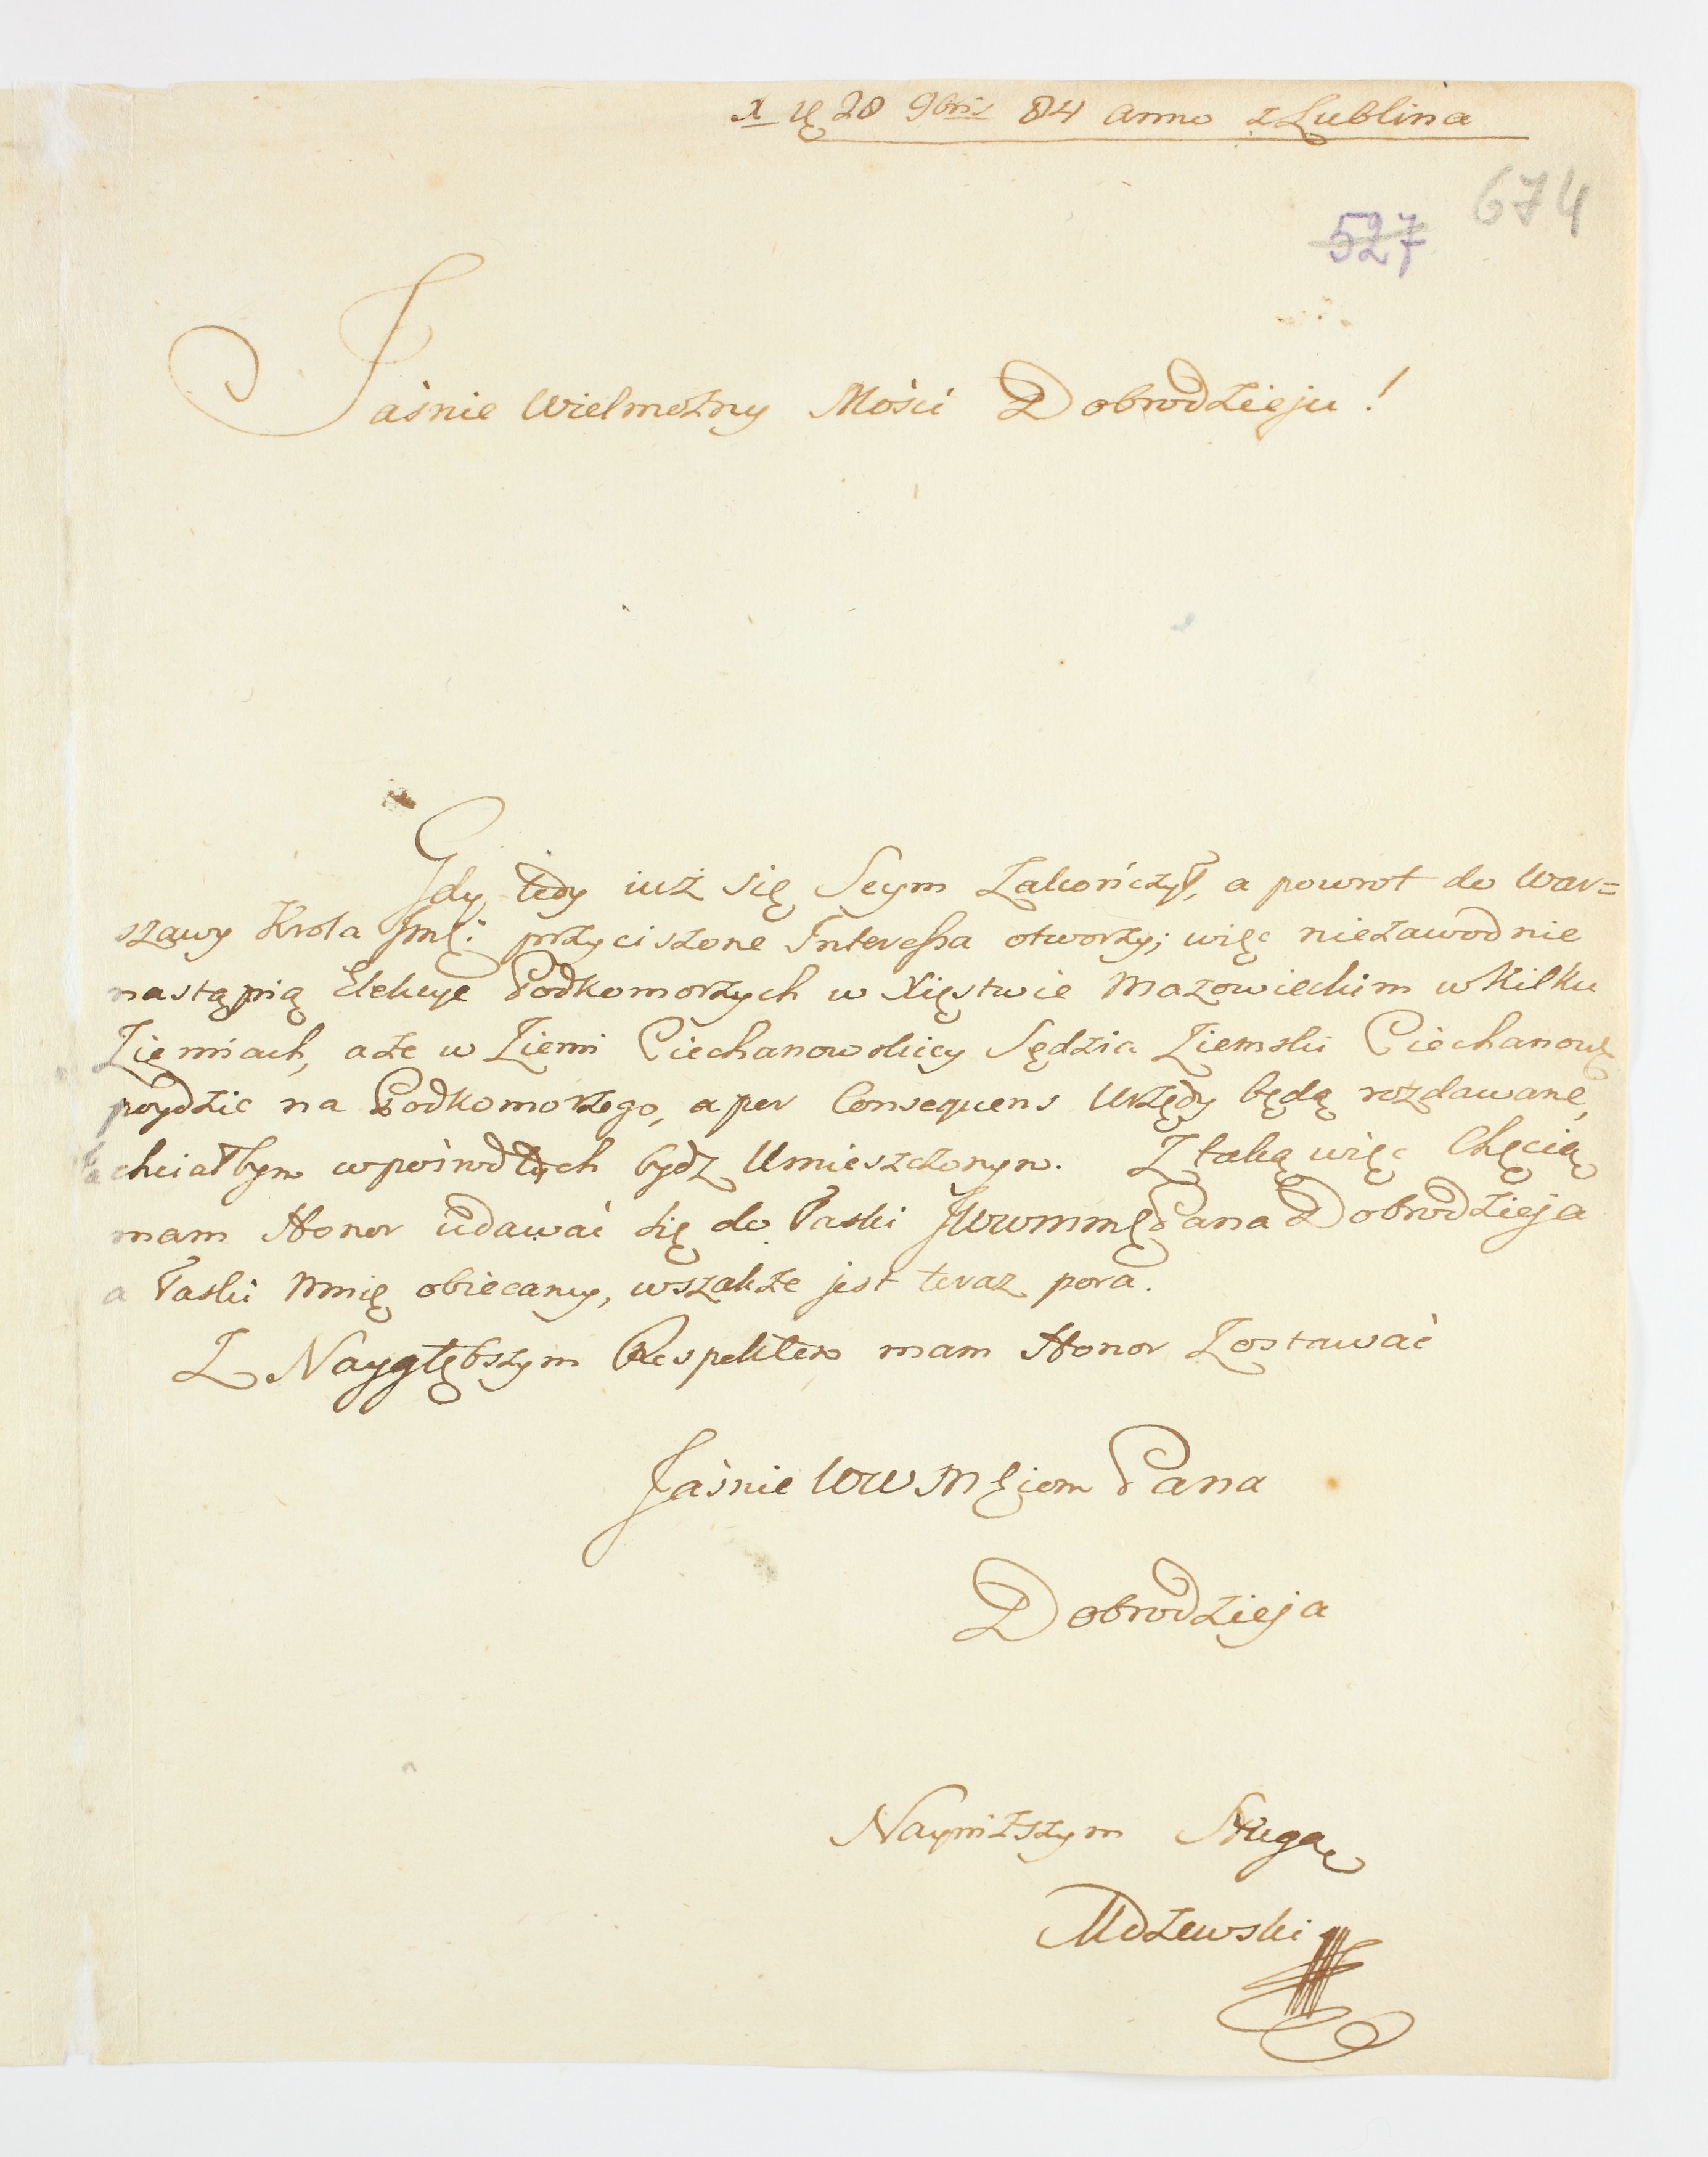 28 9bris 84 anno z Lublina
674
527
Jaśnie Wielmożny Mości Dobrodzieju!
Gdy tedy iuż się Seym Zakończył, a powrot do War=
szawy Krola Jmę: przyciszone Interessa otworzy; więc niezawodnie
nastąpią Elekcye Podkomorzych w Xięstwie Mazowieckim w kilku
Ziemiach, aże w Ziemi Ciechanowskiey Sędzia Ziemski Ciechanows
poydzie na Podkomorzego, a per Consequens Urzędy będą rozdawane,
chciałbym wpośrod tych bydz Umieszczonym. Z taką więc Chęcią
mam Honor udawać się do Łaski JWWmmę Pana Dobrodzieja
a Łaski mnię obiecany, wszakże jest teraz pora.
Z Naygłębszym Respektem mam Honor Zostawać
Jaśnie WW Męiom Pana
Dobrodzieja
Nayniższym Sługą
Mdzewski